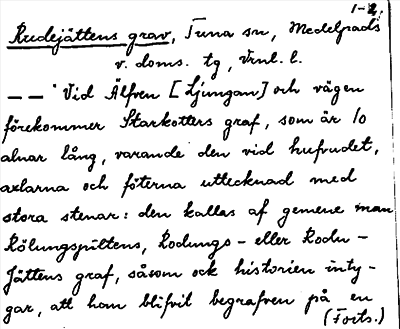 1-2.
Rudejättens grav, Tuna sn, Medelpads
v. doms. tg, Vnl. l.
— — "Vid Älfven [Ljungan] och vägen
förekommer Starkotters graf, som är 10
alnar lång, varande den vid hufvudet,
axlarna och föterna utteknad med
stora stenar: den kallas af gemene man
Rölungspiltens, Rodungs- eller Rodu-
Jättens graf, såsom ock historien inty-
gar, att han blifvit begrafven på en
(Forts.)